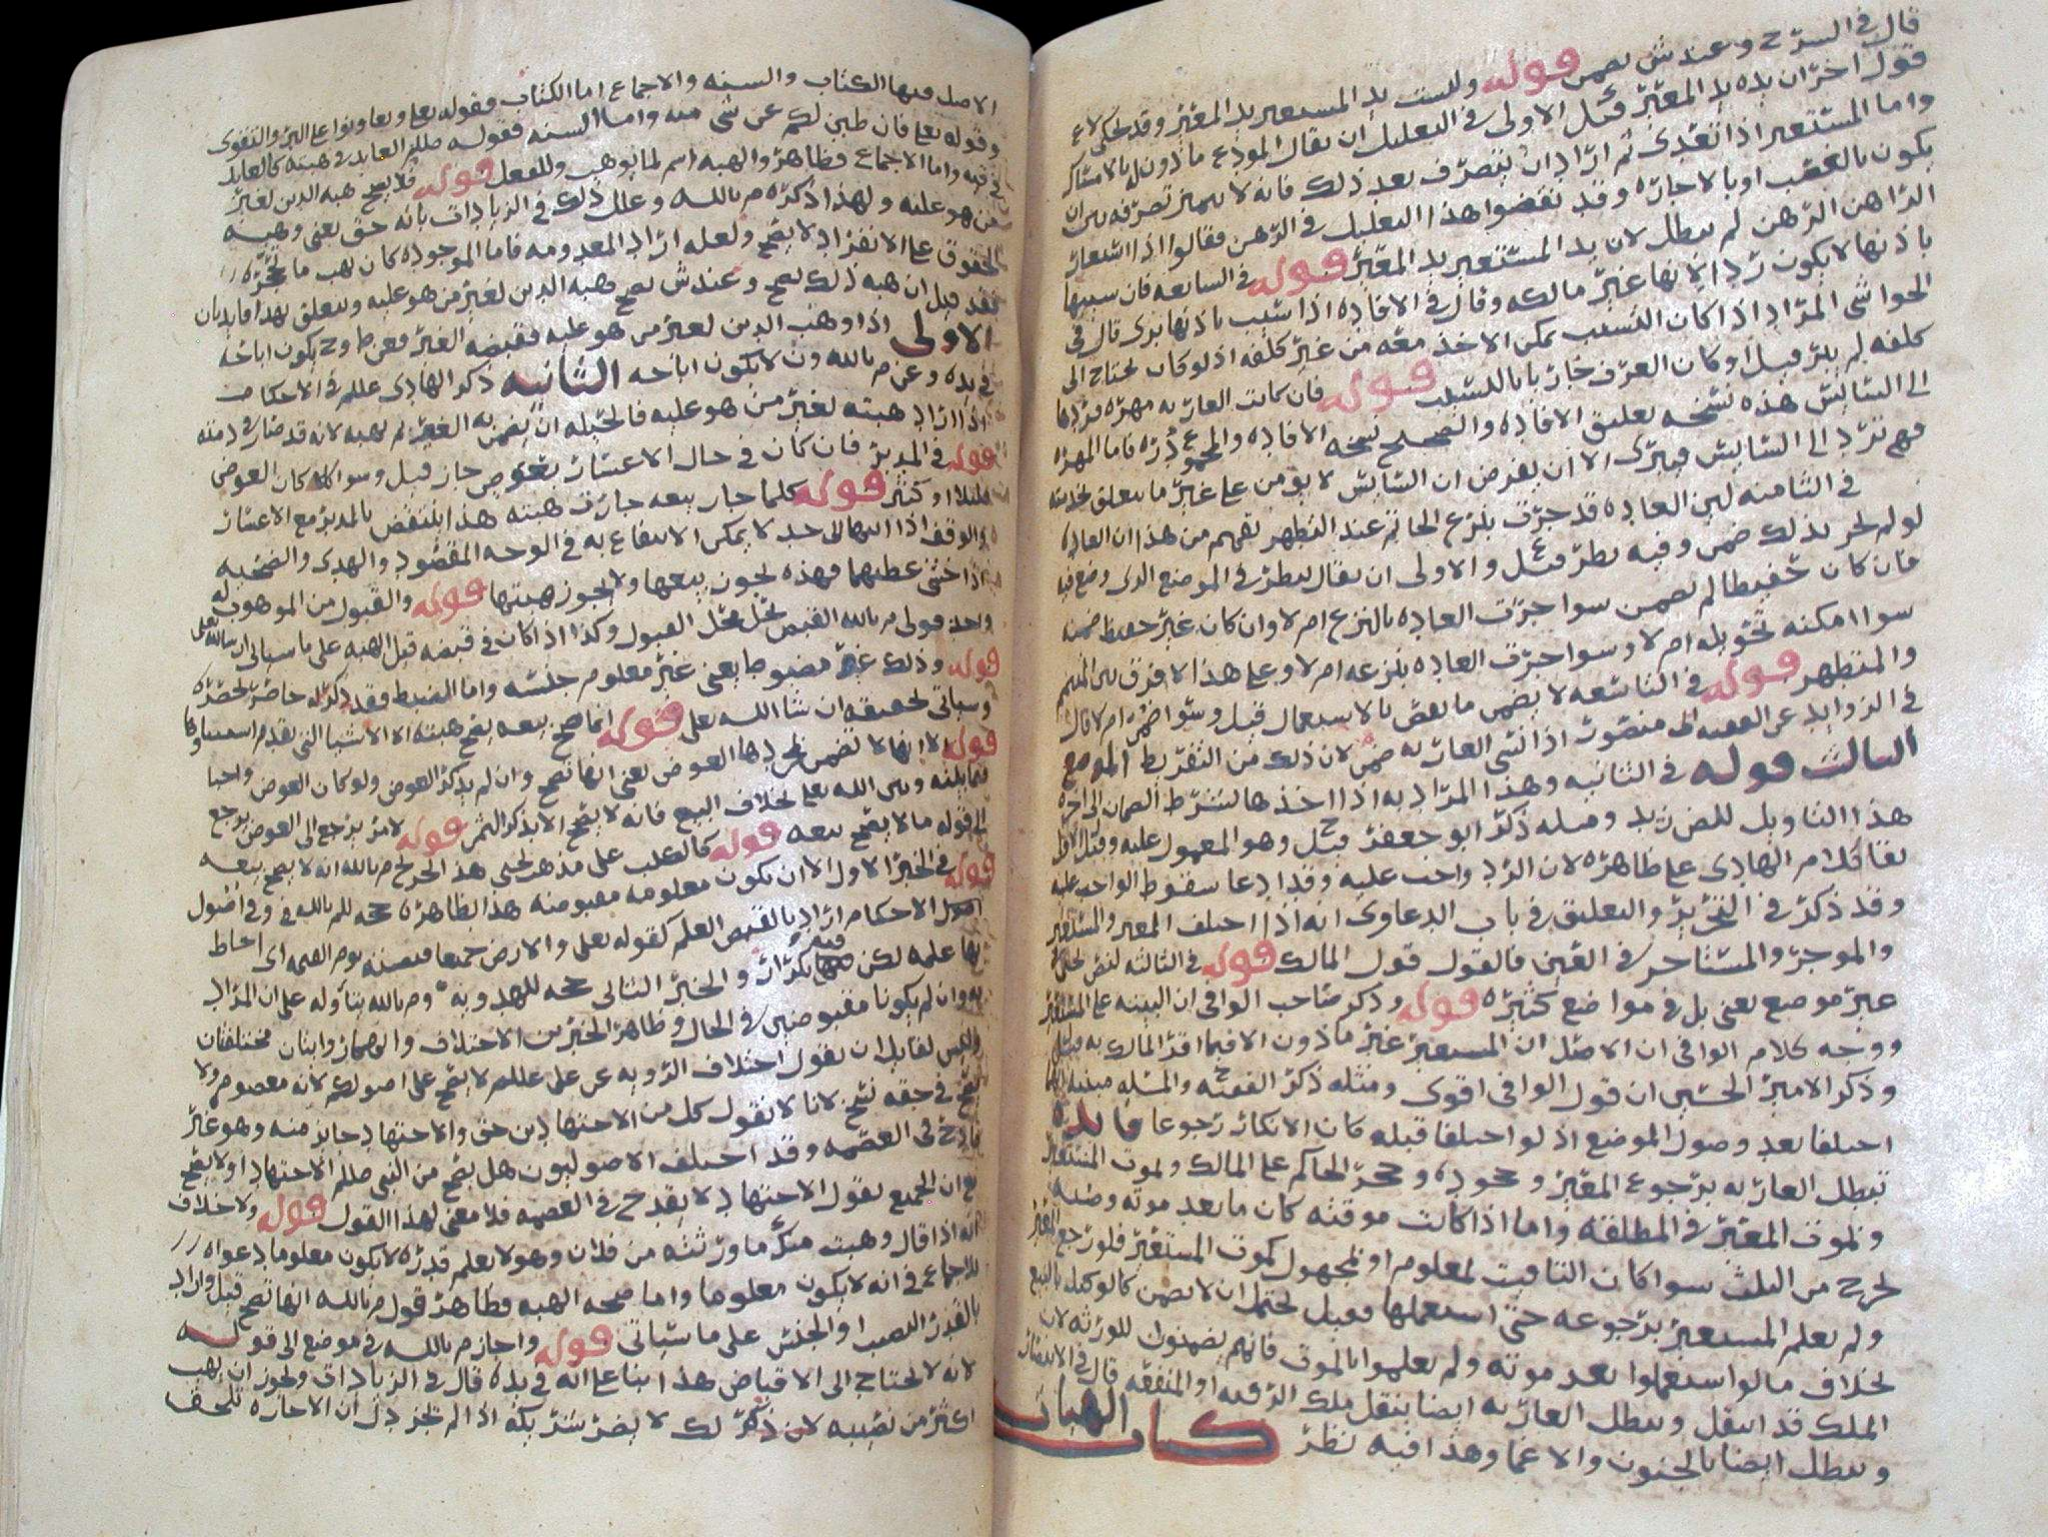 قال في الشرح وعند ش يضمن قوله وليست يد المستعير يد المعير وقد حكي لا ع
قول اخر ان يده يد المعير قيل الاولى في التعليل ان يقال المودع ماذون له بالامساك
واما المستعير اذا تعدى ثم اراد ان يتصرف بعد ذلك فانه لا يتميز تصرفه بين ان
يكون بالغصب او بالاجازه وقد نقضوا هذا التعليل في الرهن فقالوا اذا استعار
الراهن الرهن لم يبطل لان يد المستعير يد المعير قوله في السابعه فان سيبها
باذنها لا يكون ردا لانها غير مالكه وقال في الافاده اذا سيب باذنها برى قال في
الحواشي المراد اذا كان التسيب يمكن الاخذ معه من غير كلفه اذ لو كان يحتاج الى
كلفه لم يبر قيل او كان العرف جاريا بالتسيب قوله فان كانت العاريه مهره فردها
الى السايس هذه نسخه تعليق الافاده والصحيح نسخه الافاده والمجموع دره فاما المهره
فهم ترد الى السايس فيبرى الا ان يفرض ان السايس لا يومن على غير ما يتعلق بخدمته
في الثامنه لين العاده قد جرت بنزع الخاتم عند التطهر يفهم من هذا ان العاده
لو لم تجر بذلك ضمن وفيه نظر قيل والاولى ان يقال ينظر في الموضع الذي وضع فيه
فان كان حفيظا لم يضمن سوا جرت العاده بالنزع ام لا وان كان غير حفيظ ضمنه
سوا امكنه تحويله ام لا وسوا جرت العاده بنزعه ام لا وعلى هذا لا فرق بين المتيمم
والمتطهر قوله في التاسعه لا يضمن ما نقص بالاستعمال قيل وسوا ضمن ام لا قال
في الزوايد عن الفقيه ابي منصور اذا نسي العاريه ضمن لان ذلك من التفريط الموضع
الثالث قوله في الثانيه وهذا المراد به اذا اخذها بشرط الضمان الى اخره
هذا التاويل للمض زيد ومثله ذكر ابو جعفر قيل ح وهو المعمول عليه
بقا كلام الهادي على ظاهره لان الرد واجب عليه وقد ادعا سقوط الواجب عليه
وقد ذكر في التحرير والتعليق في باب الدعاوى انه اذا اختلف المعير والمستعير
والموجر والمستاجر في العين فالقول قول المالك قوله في الثالثه لنص يحيى في
غير موضع يعني بل في مواضع كثيره قوله وذكر صاحب الوافي ان البينه على المستعير
ووجه كلام الوافي ان الاصل ان المستعير غير ماذون الا فيما اقر المالك به قيل
وذكر الامير الحسين ان قول الوافي اقوى ومثله ذكر الفقيه ح والمسله مبنيه
اختلفا بعد وصول الموضع اذ لو اختلفا قبله كان الانكار رجوعا فايده
تبطل العاريه برجوع المعير وجحوده وحجر الحاكم على المالك وبموت المستعير
وبموت المعير في المطلقه واما اذا كانت موقته كان ما بعد موته وصيه
تخرج من الثلث سوا كان التاقيت لمعلوم او لمجهول كموت المستعير فلو رجع المعير
ولم يعلم المستعير برجوعه حتى استعملها فقيل يحتمل ان لا يضمن كالوكيل بالبيع
بخلاف ما لو استعملوا بعد موته ولم يعلموا بالموت فانهم يضمنون للورثه لان
الملك قد انتقل وتبطل العاريه ايضا بنقل ملك الرقبه او المنفعه قال في الانتصار
وتبطل ايضا بالجنون والاغما وهذا فيه نظر كتاب الهبات
الاصل فيها الكتاب والسنه والاجماع اما الكتاب فقوله تعلى وتعاونوا على البر والتقوى
وقوله تعلى فان طبن لكم عن شي منه واما السنه فقوله صللم العايد في هبته كالعايد
في قيه واما الاجماع فظاهر والهبه اسم لما يوهب وللفعل قوله فلا يصح هبه الدين لغير
من هو عليه ولهذا ذكره م بالله وعلل ذلك في الزيادات بانه حق يعني وهبه
الحقوق على الانفراد لا يصح ولعله اراد المعدومه فاما الموجوده كان يهب ما تحجره
فقد قيل ان هبه ذلك يصح وعند ش يصح هبه الدين لغير من هو عليه ويتعلق بهذا فايدتان
الاولى اذا وهب الدين لغير من هو عليه فقبضه الغير فعن ط وح يكون اباحه
في يده وعن م بالله ون لا يكون اباحه الثانيه ذكر الهادي عللم في الاحكام
اذا اراد هبته لغير من هو عليه فالحيله ان يضمن به الغير ثم يهبه لانه قد صار في ذمته
قوله في المدبر فان كان في حال الاعسار بعوض جاز قيل وسوا كان العوض
قليلا او كثير قوله كلما جاز بيعه جازت هبته هذا ينتقض بالمدبر مع الاعسار
والوقف اذا انتها الى حد لا يمكن الانتفاع به في الوجه المقصود والهدي والضحيه
اذا خشي عطبهما فهذه يجوز بيعها ولا يجوز هبتها قوله والقبول من الموهوب له
واحد قولي م بالله القبض يحل محل القبول وكذا اذا كان في قبضه قبل الهبه على ما سياتي ان شاالله تعلى
قوله وذلك غير مضبوط يعني غير معلوم جنسه واما الضبط فقد ذكر له حاضر تحضره
وسياتي تحقيقه ان شا الله تعلى قوله انما صح بيعه يصح هبته الا الاشيا التي تقدم استثناوها
قوله لانها لا تضمن ذكرها العوض يعني انها تصح وان لم يذكر العوض ولو كان العوض واجبا
فيما بينه وبين الله تعلى بخلاف البيع فانه لا يصح الا بذكر الثمن قوله لامر يرجع الى العوض يرجع
الى قوله ما لا يصح بيعه قوله كالكلب على مذهب يحيى هذا تخريج م بالله انه لا يصح بيعه
قوله في الخبر الاول الا ان تكون معلومه مقبوضه هذا بظاهره حجه للم بالله في وفي اصول
اصول الاحكام اراد بالقبض العلم كقوله تعلى والارض جميعا قبضته يوم القيمه اي احاط
بها علمه لكن فيه تكرار والخبر الثاني حجه للهدويه وم بالله يتاوله على ان المراد
به وان لم يكونا مقبوضين في الحال وظاهر الخبرين الاختلاف والاضمار واثنان مختلفتان
وليس لقايل ان يقول اختلاف الرويه عن علي عللم لا يصح على اصولكم لانه معصوم ولا
يصح في حقه نسخ لانا لا نقول كل من الاجتهادين حق والاجتهاد جايز منه وهو غير
قادح في العصمه وقد اختلف الاصوليون هل يصح من النبي صللم الاجتهاد او لا يصح
مع ان الجميع يقول الاجتهاد لا يقدح في العصمه فلا معنى لهذا القول قوله ولا خلاف
انه اذا قال وهبت منك ما ورثته من فلان وهو لا يعلم قدره لا يكون معلوما دعواه
للاجماع في انه لا يكون معلوما واما صحه الهبه فظاهر قول م بالله انها تصح قيل واراد
بالقدر النصيب او الجنس على ما سياتي قوله واجاز م بالله في موضع الى قوله
لانه لا يحتاج الى الاقباض هذا بنا على انه في يده قال في الزيادات ويجوز ان يهب
اكثر من نصيبه لان ذكر لك لا يضر شريكه اذا لم تجز دل ان الاجازه تلحقه